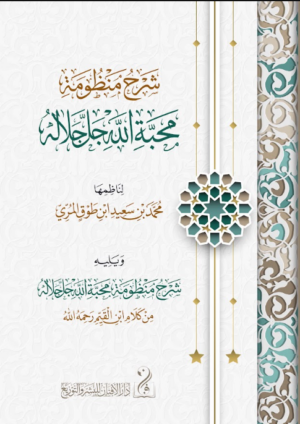 شرح منظومة
محبة الله جل جلاله
لناظمها
محمد بن سعيد ابن طوق المري
ويليه
شرح منظومة محبة الله جل جلاله
من كلام ابن القيم رحمه الله
دار الإتقان للنشر والتوزيع